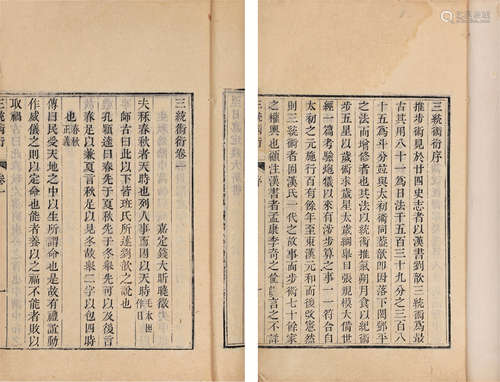 三統術衍序
推步術見於廿四史志者以漢書劉歆三統術爲最
古其用八十一爲日法千五百三十九分之三百八
十五爲斗分竝與太初術同蓋卽因落下閎鄧平
之法而增修者也其法以統術推氣朔月食以紀術
步五星以歲術求太歲綱舉目張規模大備世
經一篇考驗炮犧以來有涉步算之事一一符合自
太初之元施行百有餘年至東漢元和而後改憲然
則三統術者固漢氏一代之故事而步術七十餘家
之權輿也顧注漢書者孟康李奇之輩言之不詳
三統術衍 序
三統術衍卷一
嘉定錢大昕曉徵
夫秝春秋者天時也列人事而因以天時毛本因作目
師古曰此以下皆班氏所述劉歆之說也
孔穎達曰春先於夏秋先於冬舉先可以及後言
春足以兼夏言秋足以見冬故舉二字以包四時
也春秋正義
傳曰民受天地之中以生所謂命也是故有禮誼動
作威儀之則以定命也能者養以之福不能者敗以
取禍
三統術衍 卷一